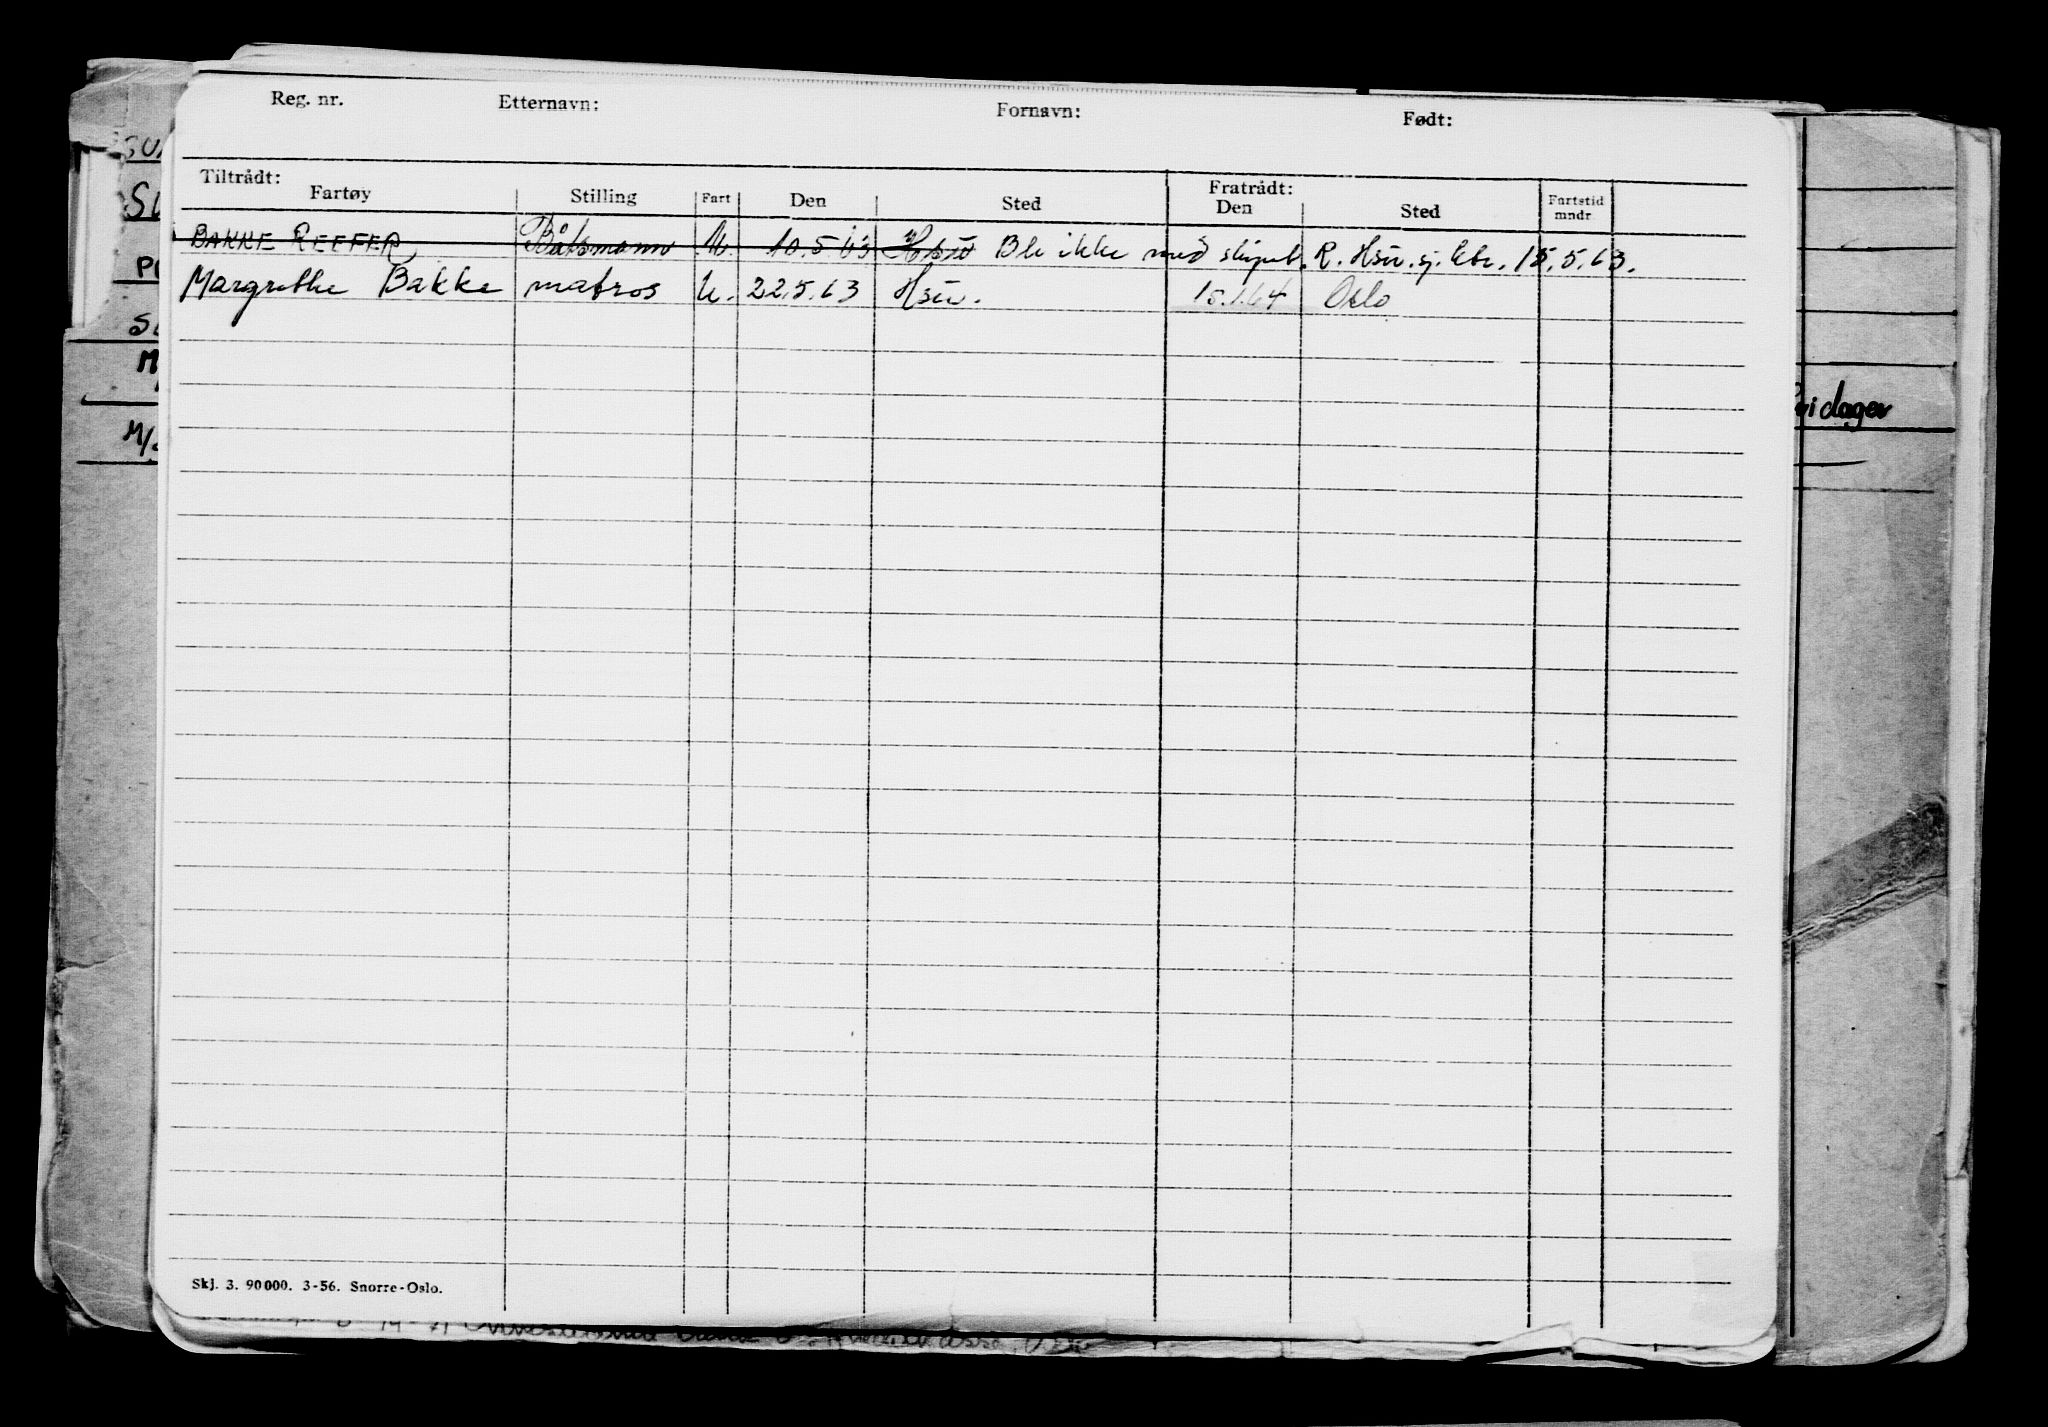 Reg. nr. Etternavn: Fornavn: Født:
Tiltrådt: Fratrådt:
Fartøy Stilling Fart Den Sted Den Sted Fartstid mndr.
BAKKE REEFER Båtsmann U. 10.5.63 Hsu Ble ikke med skipet. R. Hsu. sj. ktr. 15.5.63.
Margrethe Bakke matros U. 22.5.63 Hsu. 15.1.64 Oslo
idager
Skj. 3. 90000. 3-56. Snorre-Oslo.